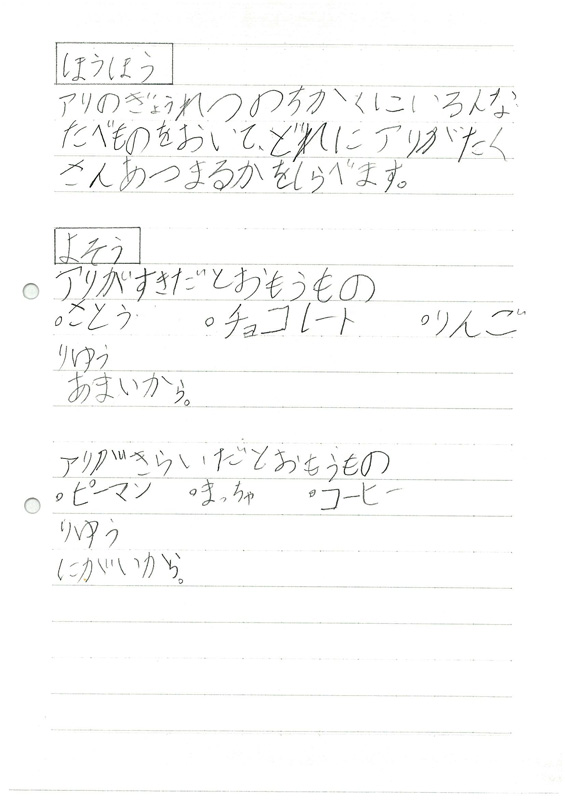 ほうほう
アリのぎょうれつのちかくにいろんな
たべものをおいて、どれにアリがたく
さんあつまるかをしらべます。
よそう
アリがすきだとおもうもの
○さとう ○チョコレート ○りんご
りゆう
あまいから。
アリがきらいだとおもうもの
○ピーマン ○まっちゃ ○コーヒー
りゆう
にがいから。